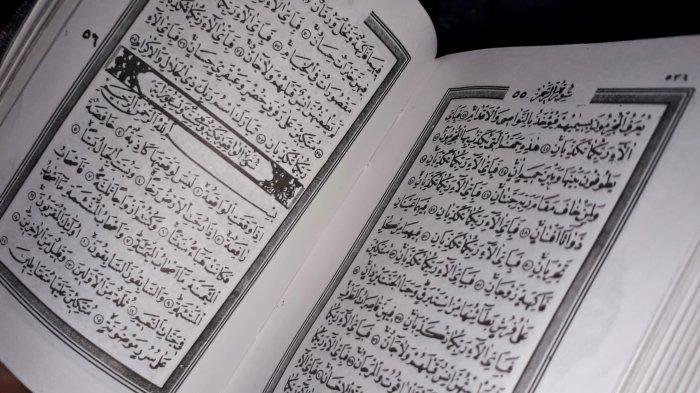 ٥٣٤
سُورَةُ الرَّحْمٰن ٥٥
يُعْرَفُ الْمُجْرِمُونَ بِسِيمَاهُمْ فَيُؤْخَذُ بِالنَّوَاصِي وَالْأَقْدَامِ ۝ فَبِأَيِّ
آلَاءِ رَبِّكُمَا تُكَذِّبَانِ ۝ هَذِهِ جَهَنَّمُ الَّتِي يُكَذِّبُ بِهَا الْمُجْرِمُونَ ۝
يَطُوفُونَ بَيْنَهَا وَبَيْنَ حَمِيمٍ آنٍ ۝ فَبِأَيِّ آلَاءِ رَبِّكُمَا تُكَذِّبَانِ ۝
وَلِمَنْ خَافَ مَقَامَ رَبِّهِ جَنَّتَانِ ۝ فَبِأَيِّ آلَاءِ رَبِّكُمَا تُكَذِّبَانِ ۝
ذَوَاتَا أَفْنَانٍ ۝ فَبِأَيِّ آلَاءِ رَبِّكُمَا تُكَذِّبَانِ ۝ فِيهِمَا عَيْنَانِ
تَجْرِيَانِ ۝ فَبِأَيِّ آلَاءِ رَبِّكُمَا تُكَذِّبَانِ ۝ فِيهِمَا مِنْ كُلِّ
فَاكِهَةٍ زَوْجَانِ ۝ فَبِأَيِّ آلَاءِ رَبِّكُمَا تُكَذِّبَانِ ۝ مُتَّكِئِينَ
عَلَى فُرُشٍ بَطَائِنُهَا مِنْ إِسْتَبْرَقٍ وَجَنَى الْجَنَّتَيْنِ دَانٍ ۝
فَبِأَيِّ آلَاءِ رَبِّكُمَا تُكَذِّبَانِ ۝ فِيهِنَّ قَاصِرَاتُ الطَّرْفِ
لَمْ يَطْمِثْهُنَّ إِنْسٌ قَبْلَهُمْ وَلَا جَانٌّ ۝ فَبِأَيِّ آلَاءِ
الْيَاقُوتُ وَالْمَرْجَانُ ۝ فَبِأَيِّ
٥٦
فِيهِمَا فَاكِهَةٌ وَنَخْلٌ وَرُمَّانٌ ۝ فَبِأَيِّ آلَاءِ رَبِّكُمَا
فِيهِنَّ خَيْرَاتٌ حِسَانٌ ۝ فَبِأَيِّ آلَاءِ رَبِّكُمَا تُكَذِّبَانِ ۝
مَقْصُورَاتٌ فِي الْخِيَامِ ۝ فَبِأَيِّ آلَاءِ رَبِّكُمَا تُكَذِّبَانِ ۝
لَمْ يَطْمِثْهُنَّ إِنْسٌ قَبْلَهُمْ وَلَا جَانٌّ ۝ فَبِأَيِّ آلَاءِ رَبِّكُمَا تُكَذِّبَانِ ۝
مُتَّكِئِينَ عَلَى رَفْرَفٍ خُضْرٍ وَعَبْقَرِيٍّ حِسَانٍ ۝ فَبِأَيِّ آلَاءِ
رَبِّكُمَا تُكَذِّبَانِ ۝ تَبَارَكَ اسْمُ رَبِّكَ ذِي الْجَلَالِ وَالْإِكْرَامِ ۝
سُورَةُ الْوَاقِعَةِ
بِسْمِ اللَّهِ الرَّحْمَنِ الرَّحِيمِ
إِذَا وَقَعَتِ الْوَاقِعَةُ ۝ لَيْسَ لِوَقْعَتِهَا كَاذِبَةٌ ۝ خَافِضَةٌ
رَافِعَةٌ ۝ إِذَا رُجَّتِ الْأَرْضُ رَجًّا ۝ وَبُسَّتِ الْجِبَالُ بَسًّا ۝
فَكَانَتْ هَبَاءً مُنْبَثًّا ۝ وَكُنْتُمْ أَزْوَاجًا ثَلَاثَةً ۝ فَأَصْحَابُ
الْمَيْمَنَةِ مَا أَصْحَابُ الْمَيْمَنَةِ ۝ وَأَصْحَابُ الْمَشْأَمَةِ مَا أَصْحَابُ
الْمَشْأَمَةِ ۝ وَالسَّابِقُونَ السَّابِقُونَ ۝ أُولَئِكَ الْمُقَرَّبُونَ ۝
فِي جَنَّاتِ النَّعِيمِ ۝ ثُلَّةٌ مِنَ الْأَوَّلِينَ ۝ وَقَلِيلٌ مِنَ الْآخِرِينَ ۝
عَلَى سُرُرٍ مَوْضُونَةٍ ۝ مُتَّكِئِينَ عَلَيْهَا مُتَقَابِلِينَ ۝